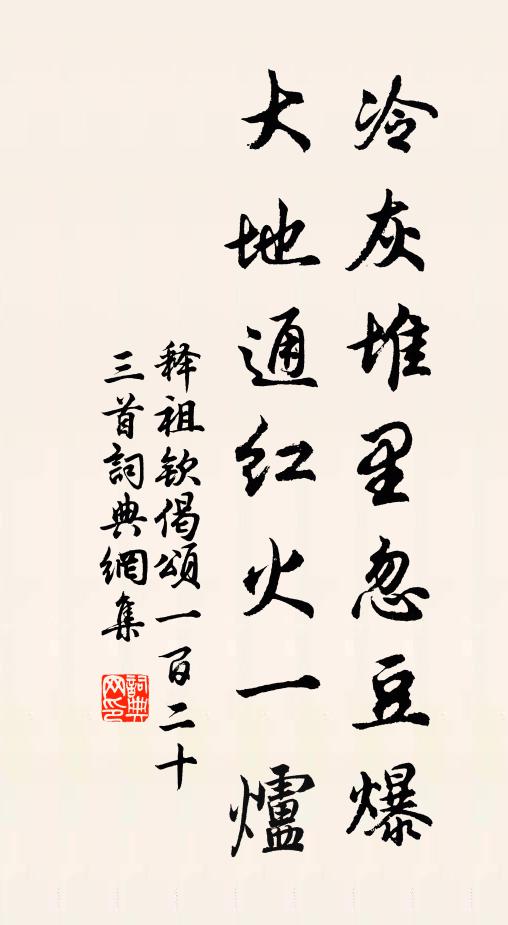 冷灰堆里忽豆爆
大地通红火一爐
释祖钦偈頌一百二十
三首詞典網集
詞典网印